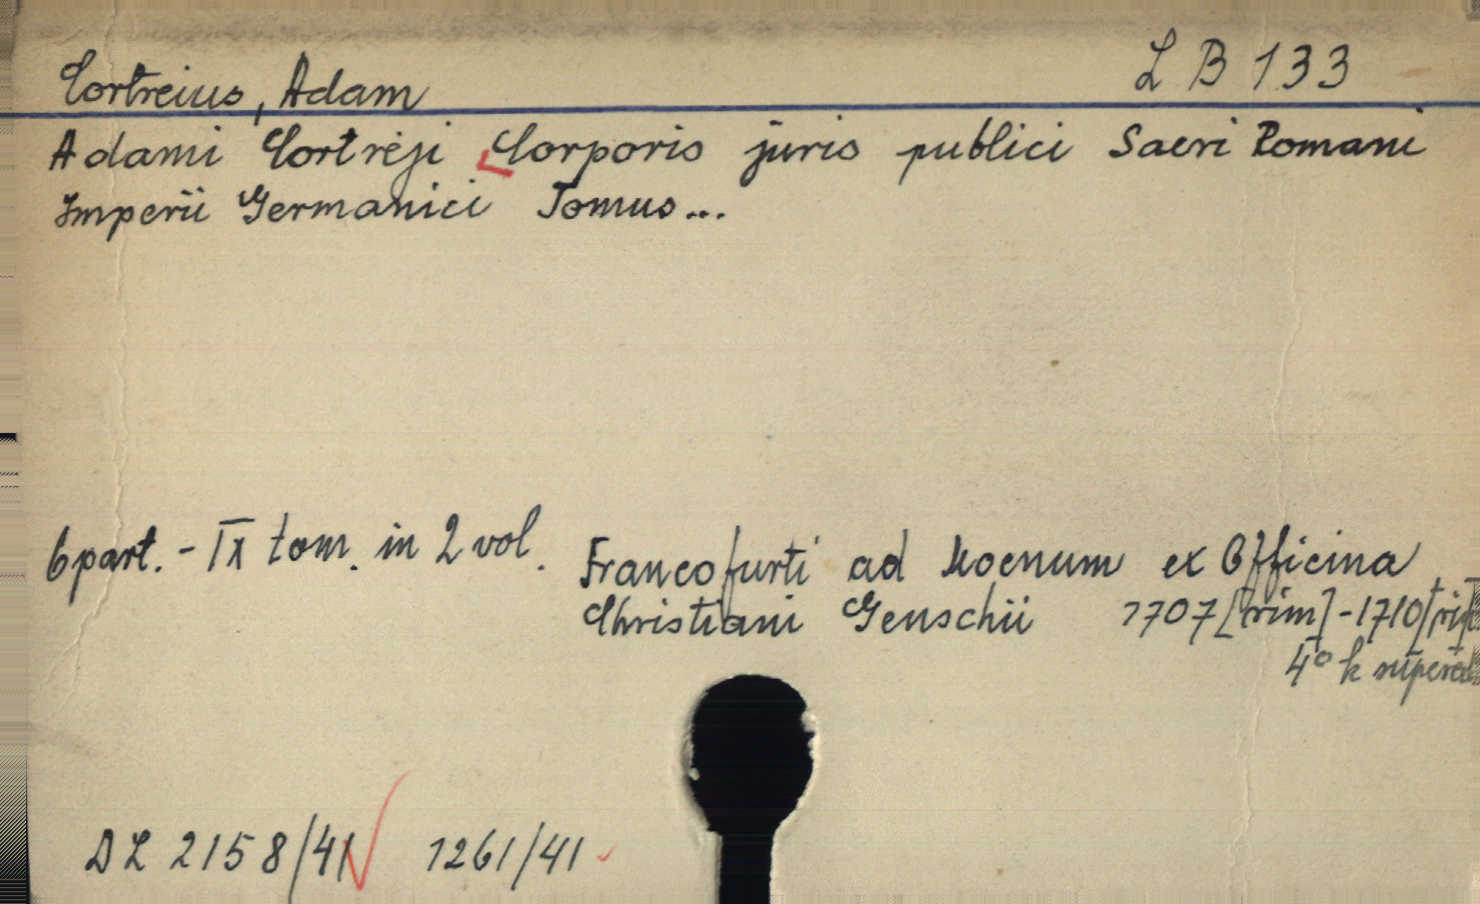 Cortreius, Adam
L B 133
Adami Cortreji Corporis juris publici Sacri Romani
Imperii Germanici Tomus...
6 part. - IX tom. in 2 vol.
Francofurti ad Moenum ex Officina
Christiani Genschii 1707 [trim] - 1710
4° k
DL 2158/41 1261/41